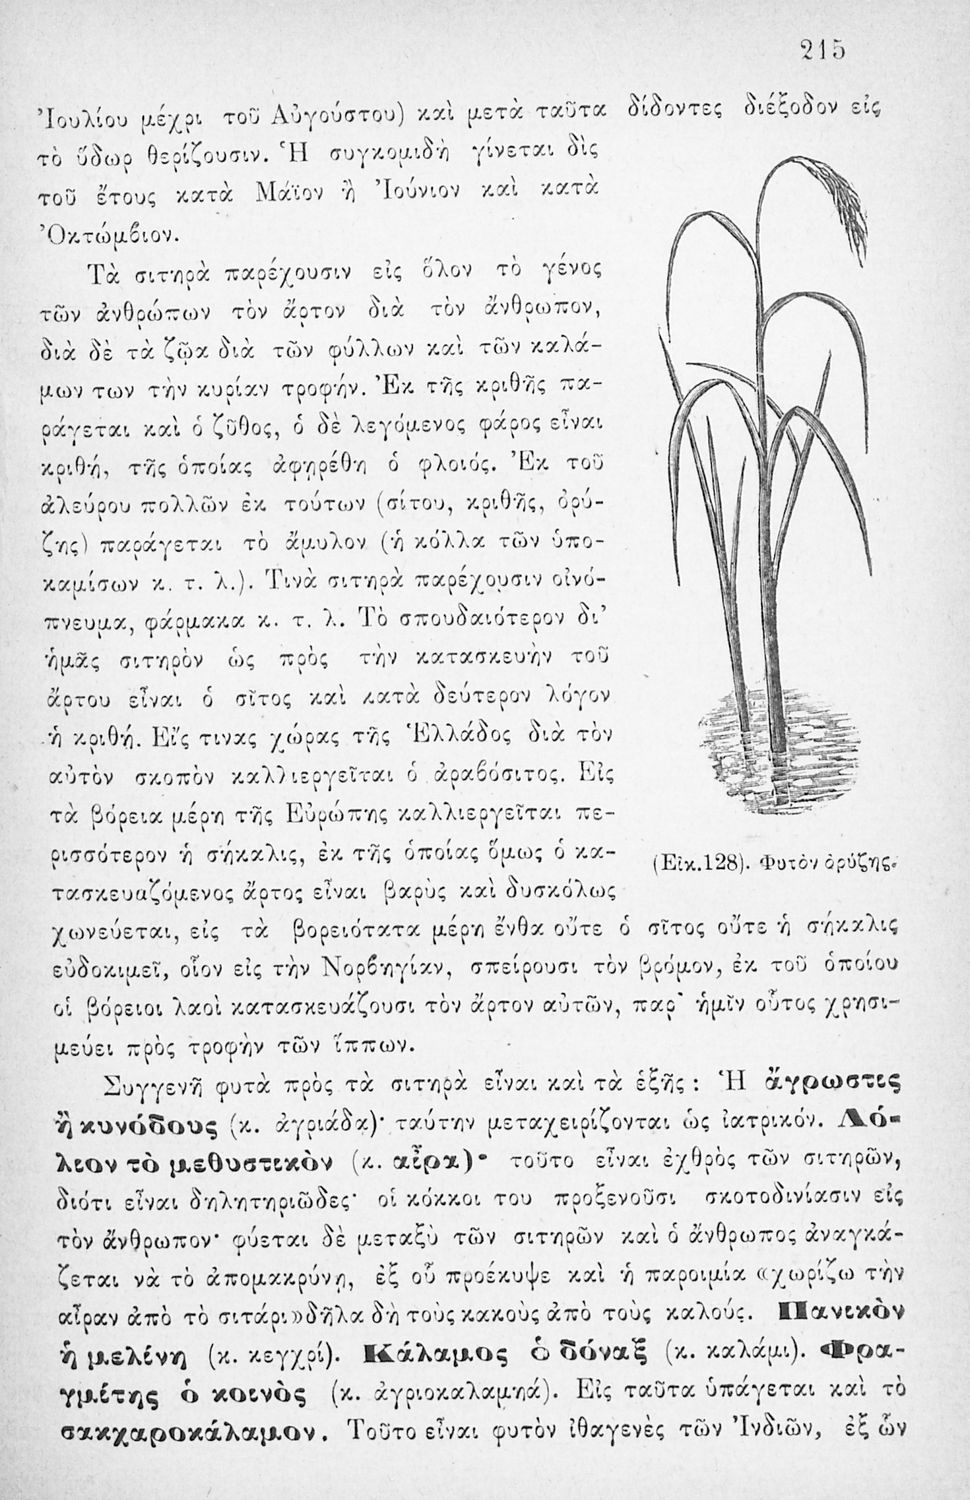 215
Ἰουλίου μέχρι τοῦ Αὐγούστου) καὶ μετὰ ταῦτα δίδοντες διέξοδον εἰς
τὸ ὕδωρ θερίζουσιν. Ἡ συγκομιδὴ γίνεται δὶς
τοῦ ἔτους κατὰ Μάϊον ἢ Ἰούνιον καὶ κατὰ
Ὀκτώμβιον.
Τὰ σιτηρὰ παρέχουσιν εἰς ὅλον τὸ γένος
τῶν ἀνθρώπων τὸν ἄρτον διὰ τὸν ἄνθρωπον,
διὰ δὲ τὰ ζῷα διὰ τῶν φύλλων καὶ τῶν καλά-
μων των τὴν κυρίαν τροφήν. Ἐκ τῆς κριθῆς πα-
ράγεται καὶ ὁ ζῦθος, ὁ δὲ λεγόμενος φάρος εἶναι
κριθή, τῆς ὁποίας ἀφῃρέθη ὁ φλοιός. Ἐκ τοῦ
ἀλεύρου πολλῶν ἐκ τούτων (σίτου, κριθῆς, ὀρύ-
ζης) παράγεται τὸ ἄμυλον (ἡ κόλλα τῶν ὑπο-
καμίσων κ. τ. λ.). Τινὰ σιτηρὰ παρέχουσιν οἰνό-
πνευμα, φάρμακα κ. τ. λ. Τὸ σπουδαιότερον δι'
ἡμᾶς σιτηρὸν ὡς πρὸς τὴν κατασκευὴν τοῦ
ἄρτου εἶναι ὁ σῖτος καὶ κατὰ δεύτερον λόγον
ἡ κριθή. Εἴς τινας χώρας τῆς Ἑλλάδος διὰ τὸν
αὐτὸν σκοπὸν καλλιεργεῖται ὁ ἀραβόσιτος. Εἰς
τὰ βόρεια μέρη τῆς Εὐρώπης καλλιεργεῖται πε-
ρισσότερον ἡ σήκαλις, ἐκ τῆς ὁποίας ὅμως ὁ κα-
τασκευαζόμενος ἄρτος εἶναι βαρὺς καὶ δυσκόλως
(Εἰκ.128). Φυτὸν ὀρύζης.
χωνεύεται, εἰς τὰ βορειότατα μέρη ἔνθα οὔτε ὁ σῖτος οὔτε ἡ σήκαλις
εὐδοκιμεῖ, οἷον εἰς τὴν Νορβηγίαν, σπείρουσι τὸν βρόμον, ἐκ τοῦ ὁποίου
οἱ βόρειοι λαοὶ κατασκευάζουσι τὸν ἄρτον αὐτῶν, παρ' ἡμῖν οὗτος χρησι-
μεύει πρὸς τροφὴν τῶν ἵππων.
Συγγενῆ φυτὰ πρὸς τὰ σιτηρὰ εἶναι καὶ τὰ ἑξῆς : Ἡ ἄγρωστις
ἢ κυνόδους (κ. ἀγριάδα)· ταύτην μεταχειρίζονται ὡς ἰατρικόν. Λό-
λιον τὸ μεθυστικὸν (κ. αἶρα)· τοῦτο εἶναι ἐχθρὸς τῶν σιτηρῶν,
διότι εἶναι δηλητηριῶδες· οἱ κόκκοι του προξενοῦσι σκοτοδινίασιν εἰς
τὸν ἄνθρωπον· φύεται δὲ μεταξὺ τῶν σιτηρῶν καὶ ὁ ἄνθρωπος ἀναγκά-
ζεται νὰ τὸ ἀπομακρύνῃ, ἐξ οὗ προέκυψε καὶ ἡ παροιμία «χωρίζω τὴν
αἶραν ἀπὸ τὸ σιτάρι» δῆλα δὴ τοὺς κακοὺς ἀπὸ τοὺς καλούς. Πανικὸν
ἡ μελίνη (κ. κεγχρί). Κάλαμος ὁ δόναξ (κ. καλάμι). Φρα-
γμίτης ὁ κοινὸς (κ. ἀγριοκαλαμηά). Εἰς ταῦτα ὑπάγεται καὶ τὸ
σακχαροκάλαμον. Τοῦτο εἶναι φυτὸν ἰθαγενὲς τῶν Ἰνδιῶν, ἐξ ὧν